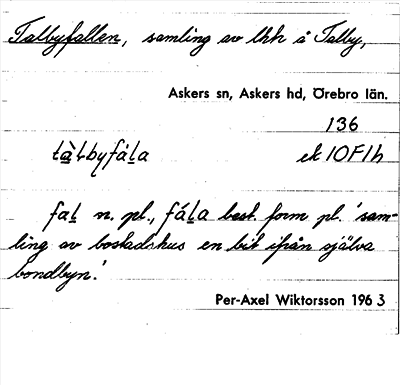 Talbyfallen, samling av lhh å Talby,
Askers sn, Askers hd, Örebro län.
136
tàlbyfála ek 10F1h
fal n. pl., fála best. form pl. 'sam-
ling av bostadshus en bit ifrån själva
bondbyn.'
Per-Axel Wiktorsson 1963